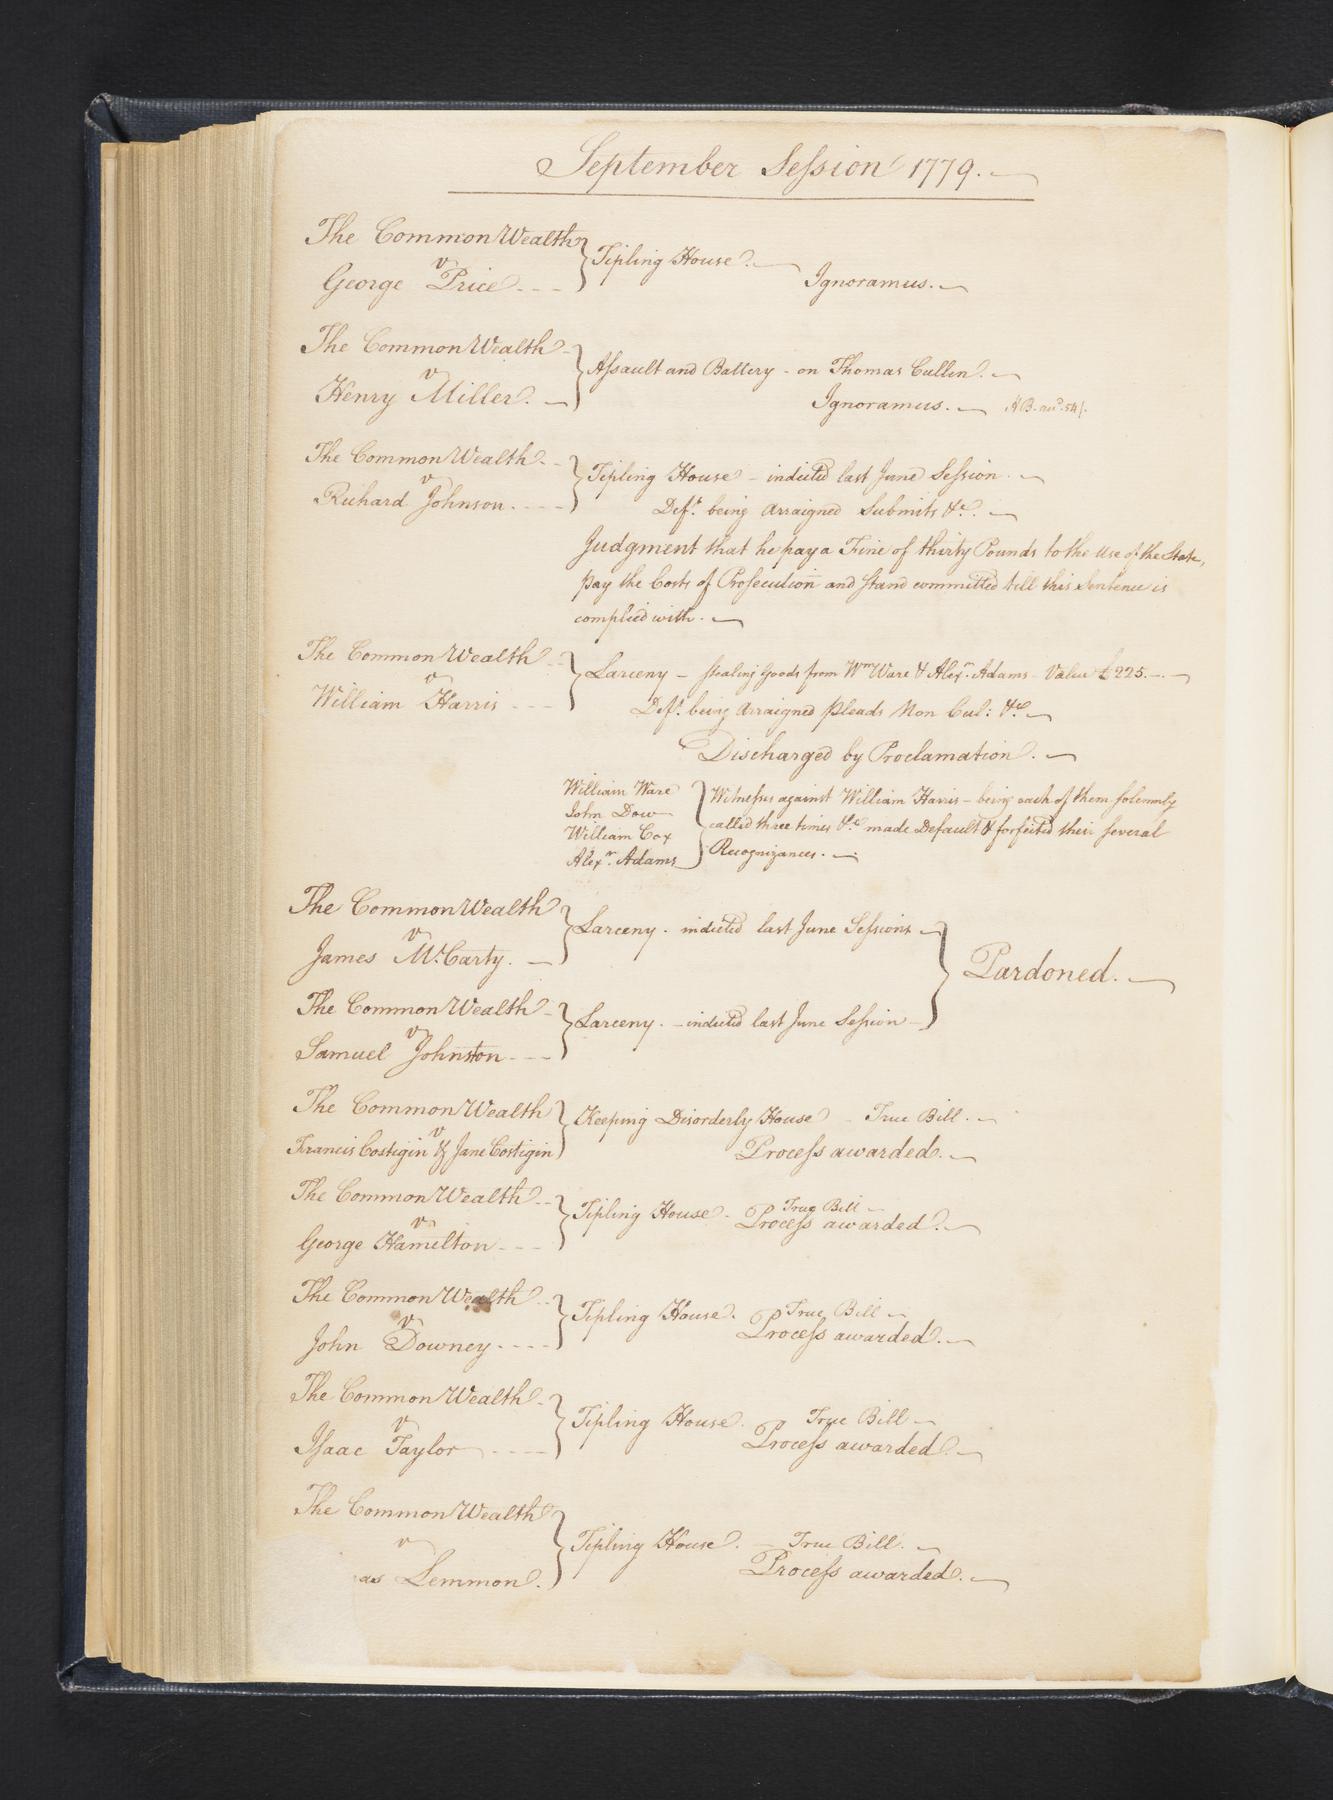 September Session 1779.
The CommonWealth
v
George Price
Tipling House.
Ignoramus.
The CommonWealth
v
Henry Miller.
Assault and Battery - on Thomas Cullen.
Ignoramus.
The CommonWealth
v
Richard Johnson.
Tipling House - indicted last June Session.
Deft. being arraigned Submits &c.
Judgment that he pay a Fine of thirty Pounds to the Use of the State,
pay the Costs of Prosecution and stand committed till this Sentence is
complied with.
The CommonWealth
v
William Harris
Larceny - stealing Goods from Wm Ware & Alexr. Adams - Value £225.
Deft. being arraigned pleads Non Cul: &c
Discharged by Proclamation.
William Ware
John Dow
William Cox
Alexr. Adams
Witnesses against William Harris - being each of them solemnly
called three times &c made Default & forfeited their several
Recognizances.
The CommonWealth
v
James McCarty.
Larceny. indicted last June Sessions
The CommonWealth
v
Samuel Johnston
Larceny. - indicted last June Session
Pardoned.
The CommonWealth
v
Francis Costigin & Jane Costigin
Keeping Disorderly House - True Bill.
Process awarded.
The CommonWealth
v
George Hamelton
Tipling House - True Bill
Process awarded.
The CommonWealth
v
John Downey
Tipling House. True Bill
Process awarded.
The CommonWealth
v
Isaac Taylor
Tipling House. True Bill
Process awarded.
The CommonWealth
v
as Lemmon.
Tipling House. - True Bill.
Process awarded.